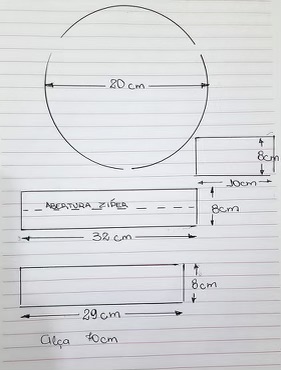 20 cm
8cm
10cm
ABERTURA ZIPER
8cm
32 cm
8cm
29 cm
Alça 70cm